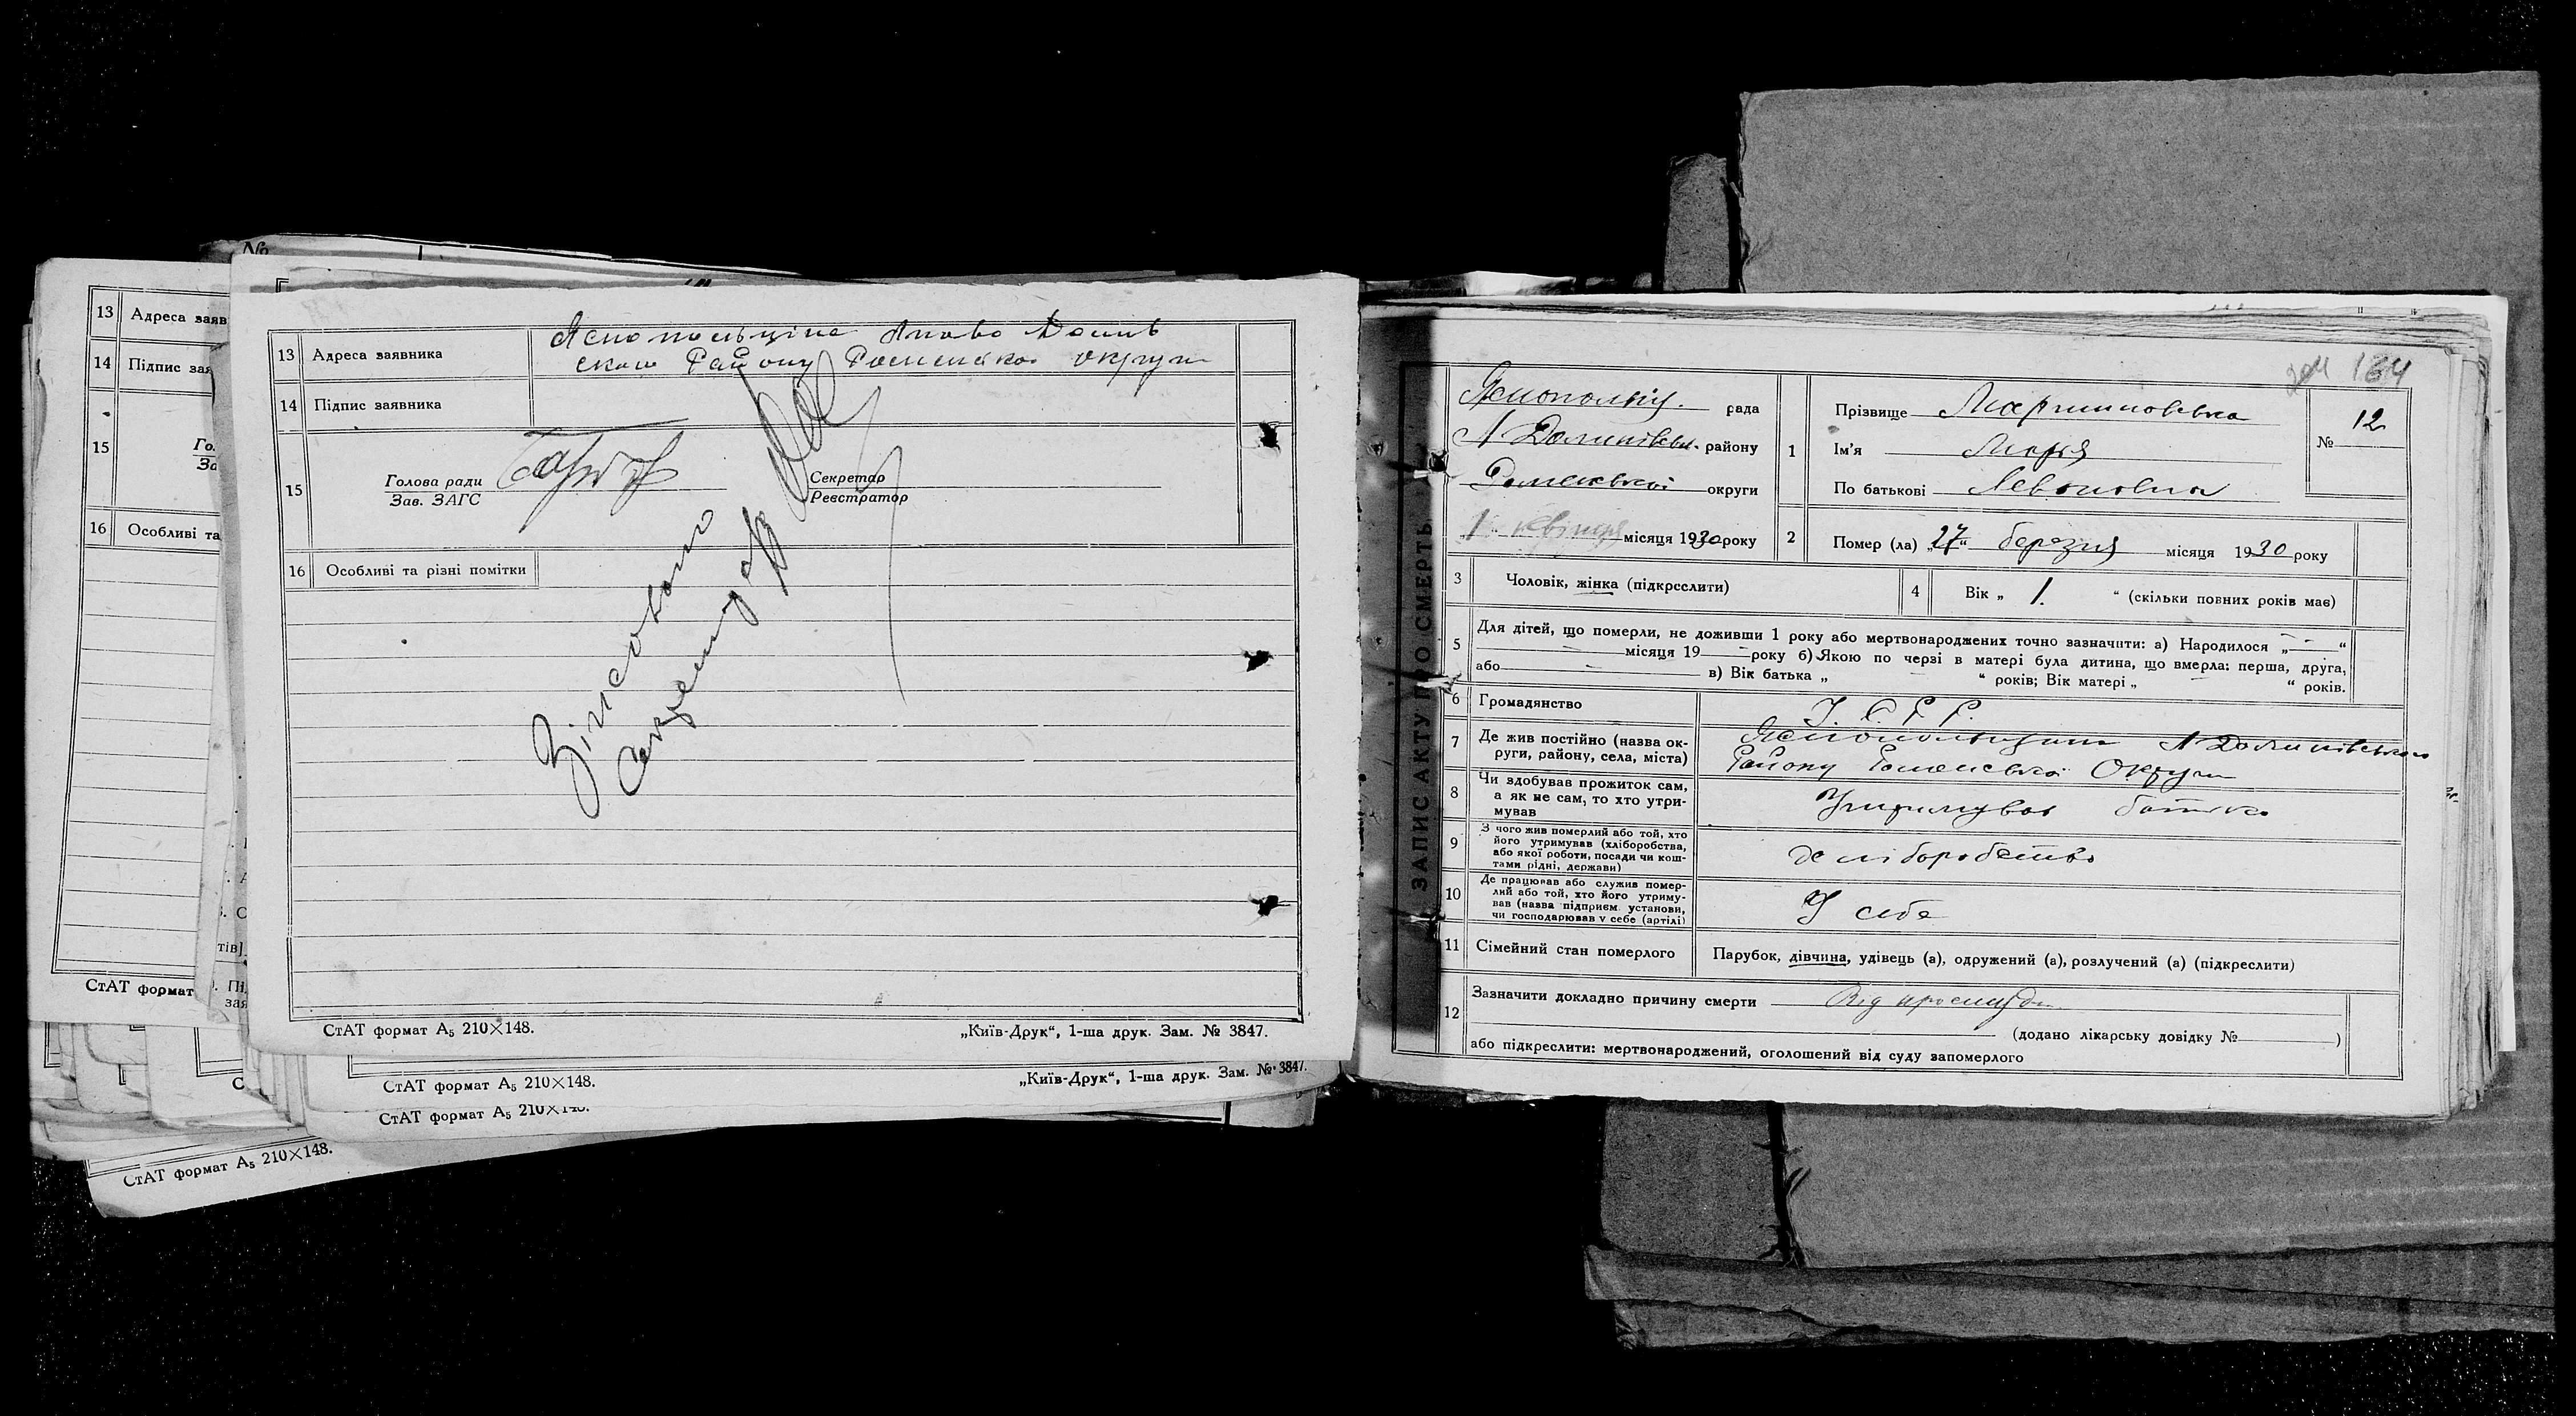 №
13 Адреса заяв
14 Підпис зая
15
16 Особливі та
СтАТ формат
13 Адреса заявника
Району Роменської округи
14 Підпис заявника
15
Голова ради
Зав. ЗАГС
Секретар
Реєстратор
16 Особливі та різні помітки
СтАТ формат А₅ 210×148.
„Київ-Друк“, 1-ша друк. Зам. № 3847.
СтАТ формат А₅ 210×148.
„Київ-Друк“, 1-ша друк. Зам. № 3847.
СтАТ формат А₅ 210×148.
СтАТ формат А₅ 210×148.
ЗАПИС АКТУ ПРО СМЕРТЬ
184
рада
району
Роменської округи
1 квітня місяця 1930 року
1
Прізвище Мартиновська
Ім'я Марія
По батькові Левоновна
№ 12
2 Помер (ла) „27“ березня місяця 1930 року
3 Чоловік, жінка (підкреслити)
4 Вік „ 1. “ (скільки повних років має)
5 Для дітей, що померли, не доживши 1 року або мертвонароджених точно зазначити: а) Народилося „ — “
— місяця 19 — року б) Якою по черзі в матері була дитина, що вмерла: перша, друга,
або — в) Вік батька „ — “ років; Вік матері „ — “ років.
6 Громадянство У. С. Р. Р.
7 Де жив постійно (назва ок-
руги, району, села, міста)
Району Роменської Округи
8 Чи здобував прожиток сам,
а як не сам, то хто утри-
мував
Утримував батько
9 З чого жив померлий або той, хто
його утримував (хліборобства,
або якої роботи, посади чи кош-
тами рідні, держави)
хліборобство
10 Де працював або служив помер-
лий або той, хто його утриму-
вав (назва підприєм. установи,
чи господарював у себе (артілі)
У себе
11 Сімейний стан померлого
Парубок, дівчина, удівець (а), одружений (а), розлучений (а) (підкреслити)
12 Зазначити докладно причину смерти Від простуди
(додано лікарську довідку № )
або підкреслити: мертвонароджений, оголошений від суду запомерлого